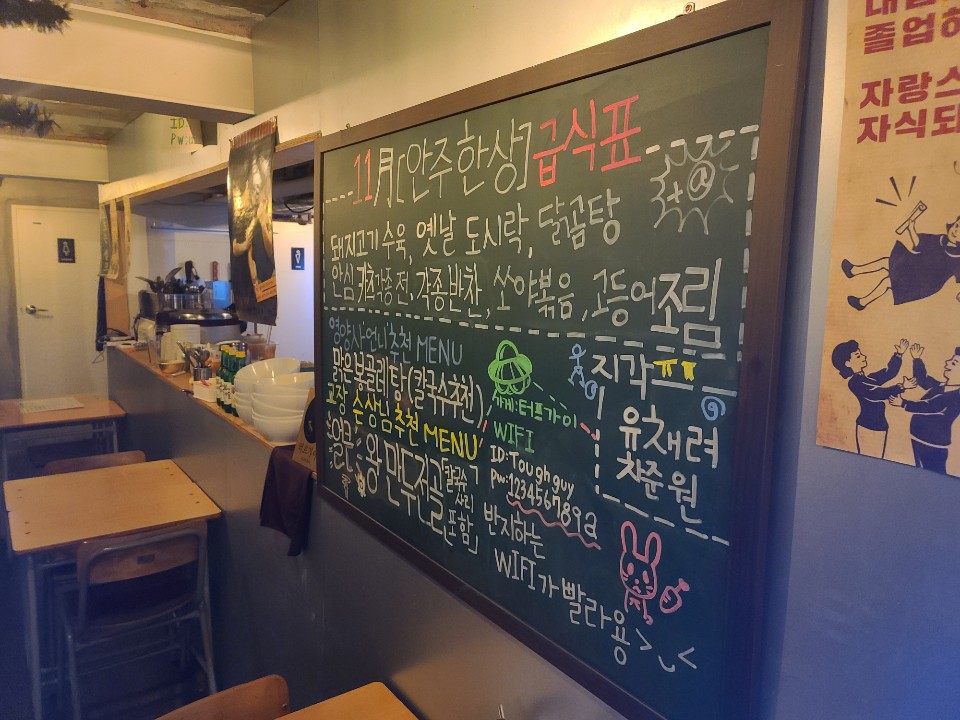 11月[안주한상]급식표
돼지고기 수육, 옛날 도시락, 달곰탕
안심카츠각종전, 각종반찬, 쏘야볶음, 고등어조림
영양사언니추천 MENU
맑은봉골레탕(칼국수추천)
교장 손상님추천 MENU
얼큰 왕만두전골[칼국수사리포함]
가게:터프가이
WIFI
ID:Toughguy
Pw:123456789@
반지하는
WIFI가 빨라용>~<
지각ㅠㅠ
유채려
차준원
ID
Pw:
졸업
자랑스
자식되